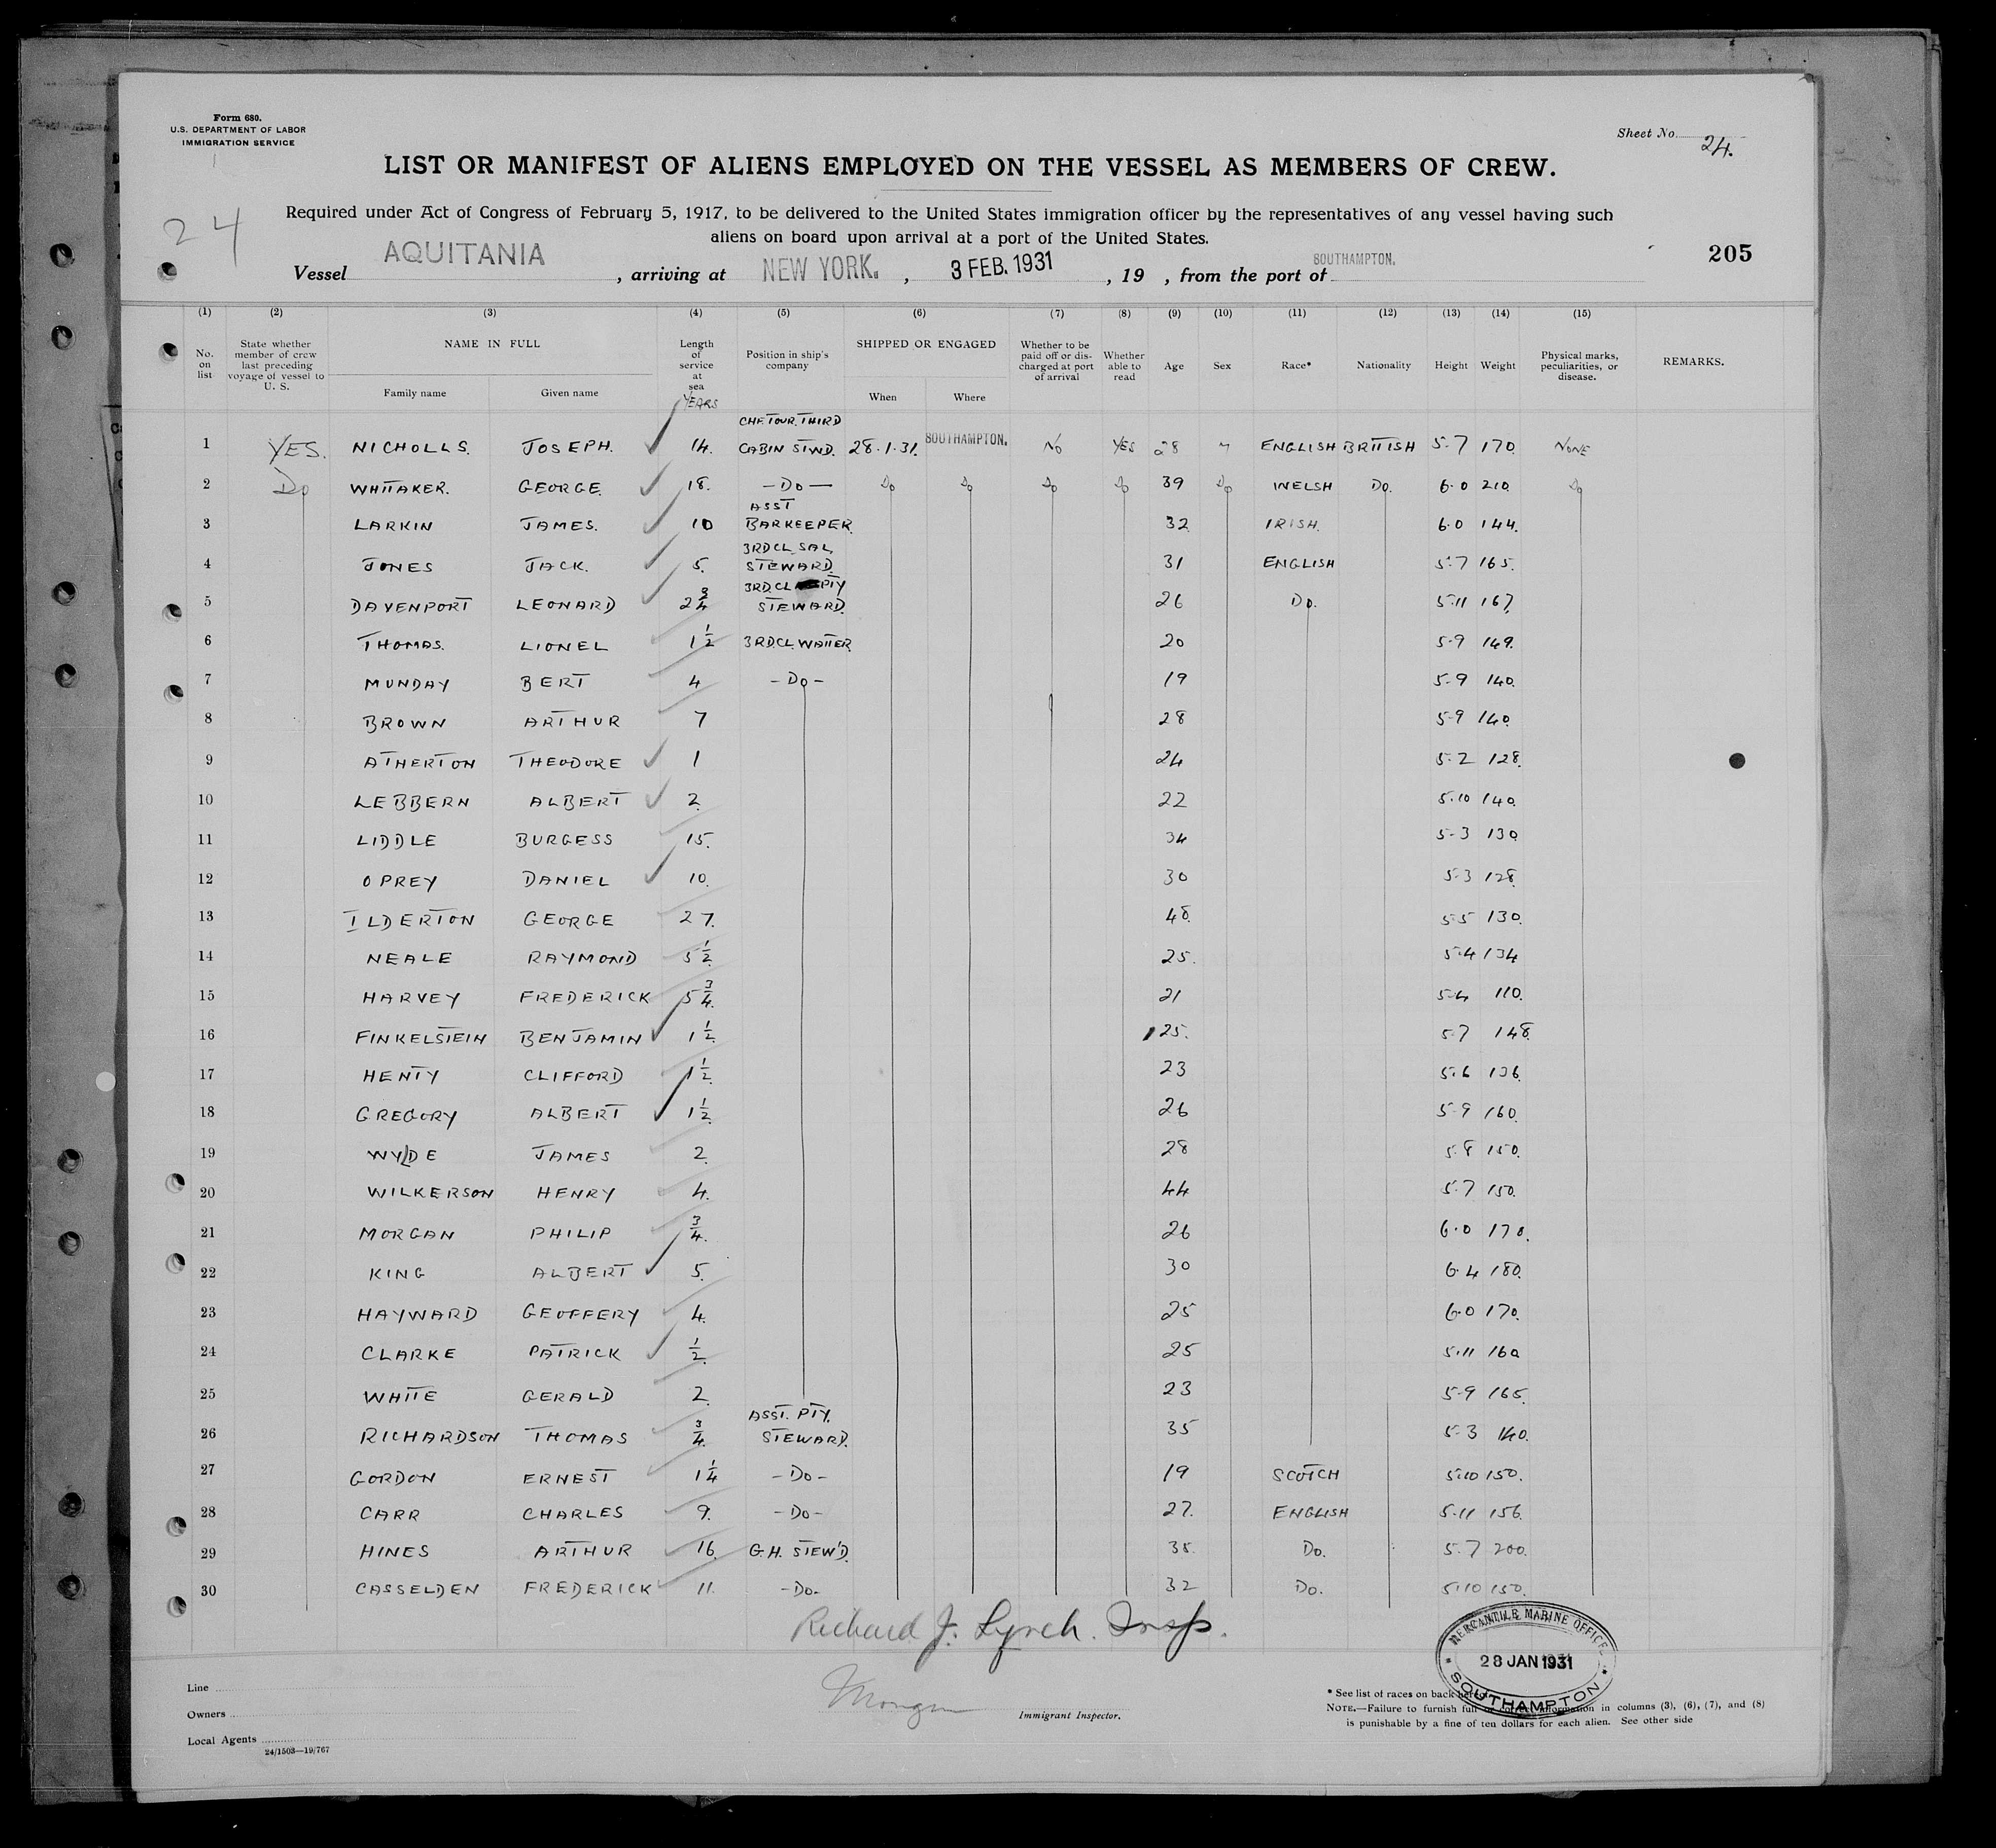 Form 680.
U.S. DEPARTMENT OF LABOR
IMMIGRATION SERVICE
Sheet No. 24.
LIST OR MANIFEST OF ALIENS EMPLOYED ON THE VESSEL AS MEMBERS OF CREW.
24
Required under Act of Congress of February 5, 1917, to be delivered to the United States immigration officer by the representatives of any vessel having such
aliens on board upon arrival at a port of the United States.
205
Vessel AQUITANIA, arriving at NEW YORK., 3 FEB. 1931, 19 , from the port of SOUTHAMPTON.
(1) (2) (3) (4) (5) (6) (7) (8) (9) (10) (11) (12) (13) (14) (15)
No. on list
State whether member of crew last preceding voyage of vessel to U. S.
NAME IN FULL
Family name
Given name
Length of service at sea
YEARS
Position in ship's company
SHIPPED OR ENGAGED
When
Where
Whether to be paid off or discharged at port of arrival
Whether able to read
Age
Sex
Race*
Nationality
Height
Weight
Physical marks, peculiarities, or disease.
REMARKS.
1 YES. NICHOLLS. JOSEPH. 14. CHF. TOUR. THIRD CABIN STWD. 28.1.31. SOUTHAMPTON. No YES 28 ENGLISH BRITISH 5.7 170. NONE
2 Do WHITAKER. GEORGE. 18. -Do- Do Do Do Do 39 Do WELSH Do. 6.0 210. Do
3 LARKIN JAMES. 10 ASST BARKEEPER. 32. IRISH. 6.0 144.
4 JONES JACK. 5. 3RD CL. SAL. STEWARD. 31 ENGLISH 5.7 165.
5 DAVENPORT LEONARD 2 3/4 3RD CL PTY STEWARD. 26 Do. 5.11 167.
6 THOMAS. LIONEL 1 1/2 3RD.CL. WAITER. 20 5.9 149.
7 MUNDAY BERT 4 -Do- 19 5.9 140.
8 BROWN ARTHUR 7 28 5.9 140.
9 ATHERTON THEODORE 1 24 5.2 128.
10 LEBBERN ALBERT 2. 22 5.10 140.
11 LIDDLE BURGESS 15. 34 5.3 130
12 OPREY DANIEL 10. 30 5.3 128.
13 ILDERTON GEORGE 27. 48. 5.5 130.
14 NEALE RAYMOND 5 1/2. 25. 5.4 134
15 HARVEY FREDERICK 5 3/4. 21 5.4 110.
16 FINKELSTEIN BENJAMIN 1 1/2. 25. 5.7 148.
17 HENTY CLIFFORD 1 1/2. 23 5.6 136.
18 GREGORY ALBERT 1 1/2. 26 5.9 160.
19 WYLDE JAMES 2. 28 5.8 150.
20 WILKERSON HENRY 4. 44 5.7 150.
21 MORGAN PHILIP 3/4. 26 6.0 170.
22 KING ALBERT 5. 30 6.4 180.
23 HAYWARD GEOFFERY 4. 25 6.0 170.
24 CLARKE PATRICK 1/2. 25 5.11 160
25 WHITE GERALD 2. 23 5.9 165.
26 RICHARDSON THOMAS 3/4. ASST. PTY. STEWARD. 35 5.3 140.
27 GORDON ERNEST 1 1/4 -Do- 19 SCOTCH 5.10 150.
28 CARR CHARLES 9. -Do- 27. ENGLISH 5.11 156.
29 HINES ARTHUR 16. G.H. STEW'D. 35. Do. 5.7 200.
30 CASSELDEN FREDERICK 11. -Do- 32 Do. 5.10 150.
Richard J. Lynch. Insp.
MERCANTILE MARINE OFFICE
28 JAN 1931
SOUTHAMPTON
Line
Owners
Local Agents
24/1503—19/767
Immigrant Inspector.
* See list of races on back
NOTE.—Failure to furnish full information in columns (3), (6), (7), and (8)
is punishable by a fine of ten dollars for each alien. See other side